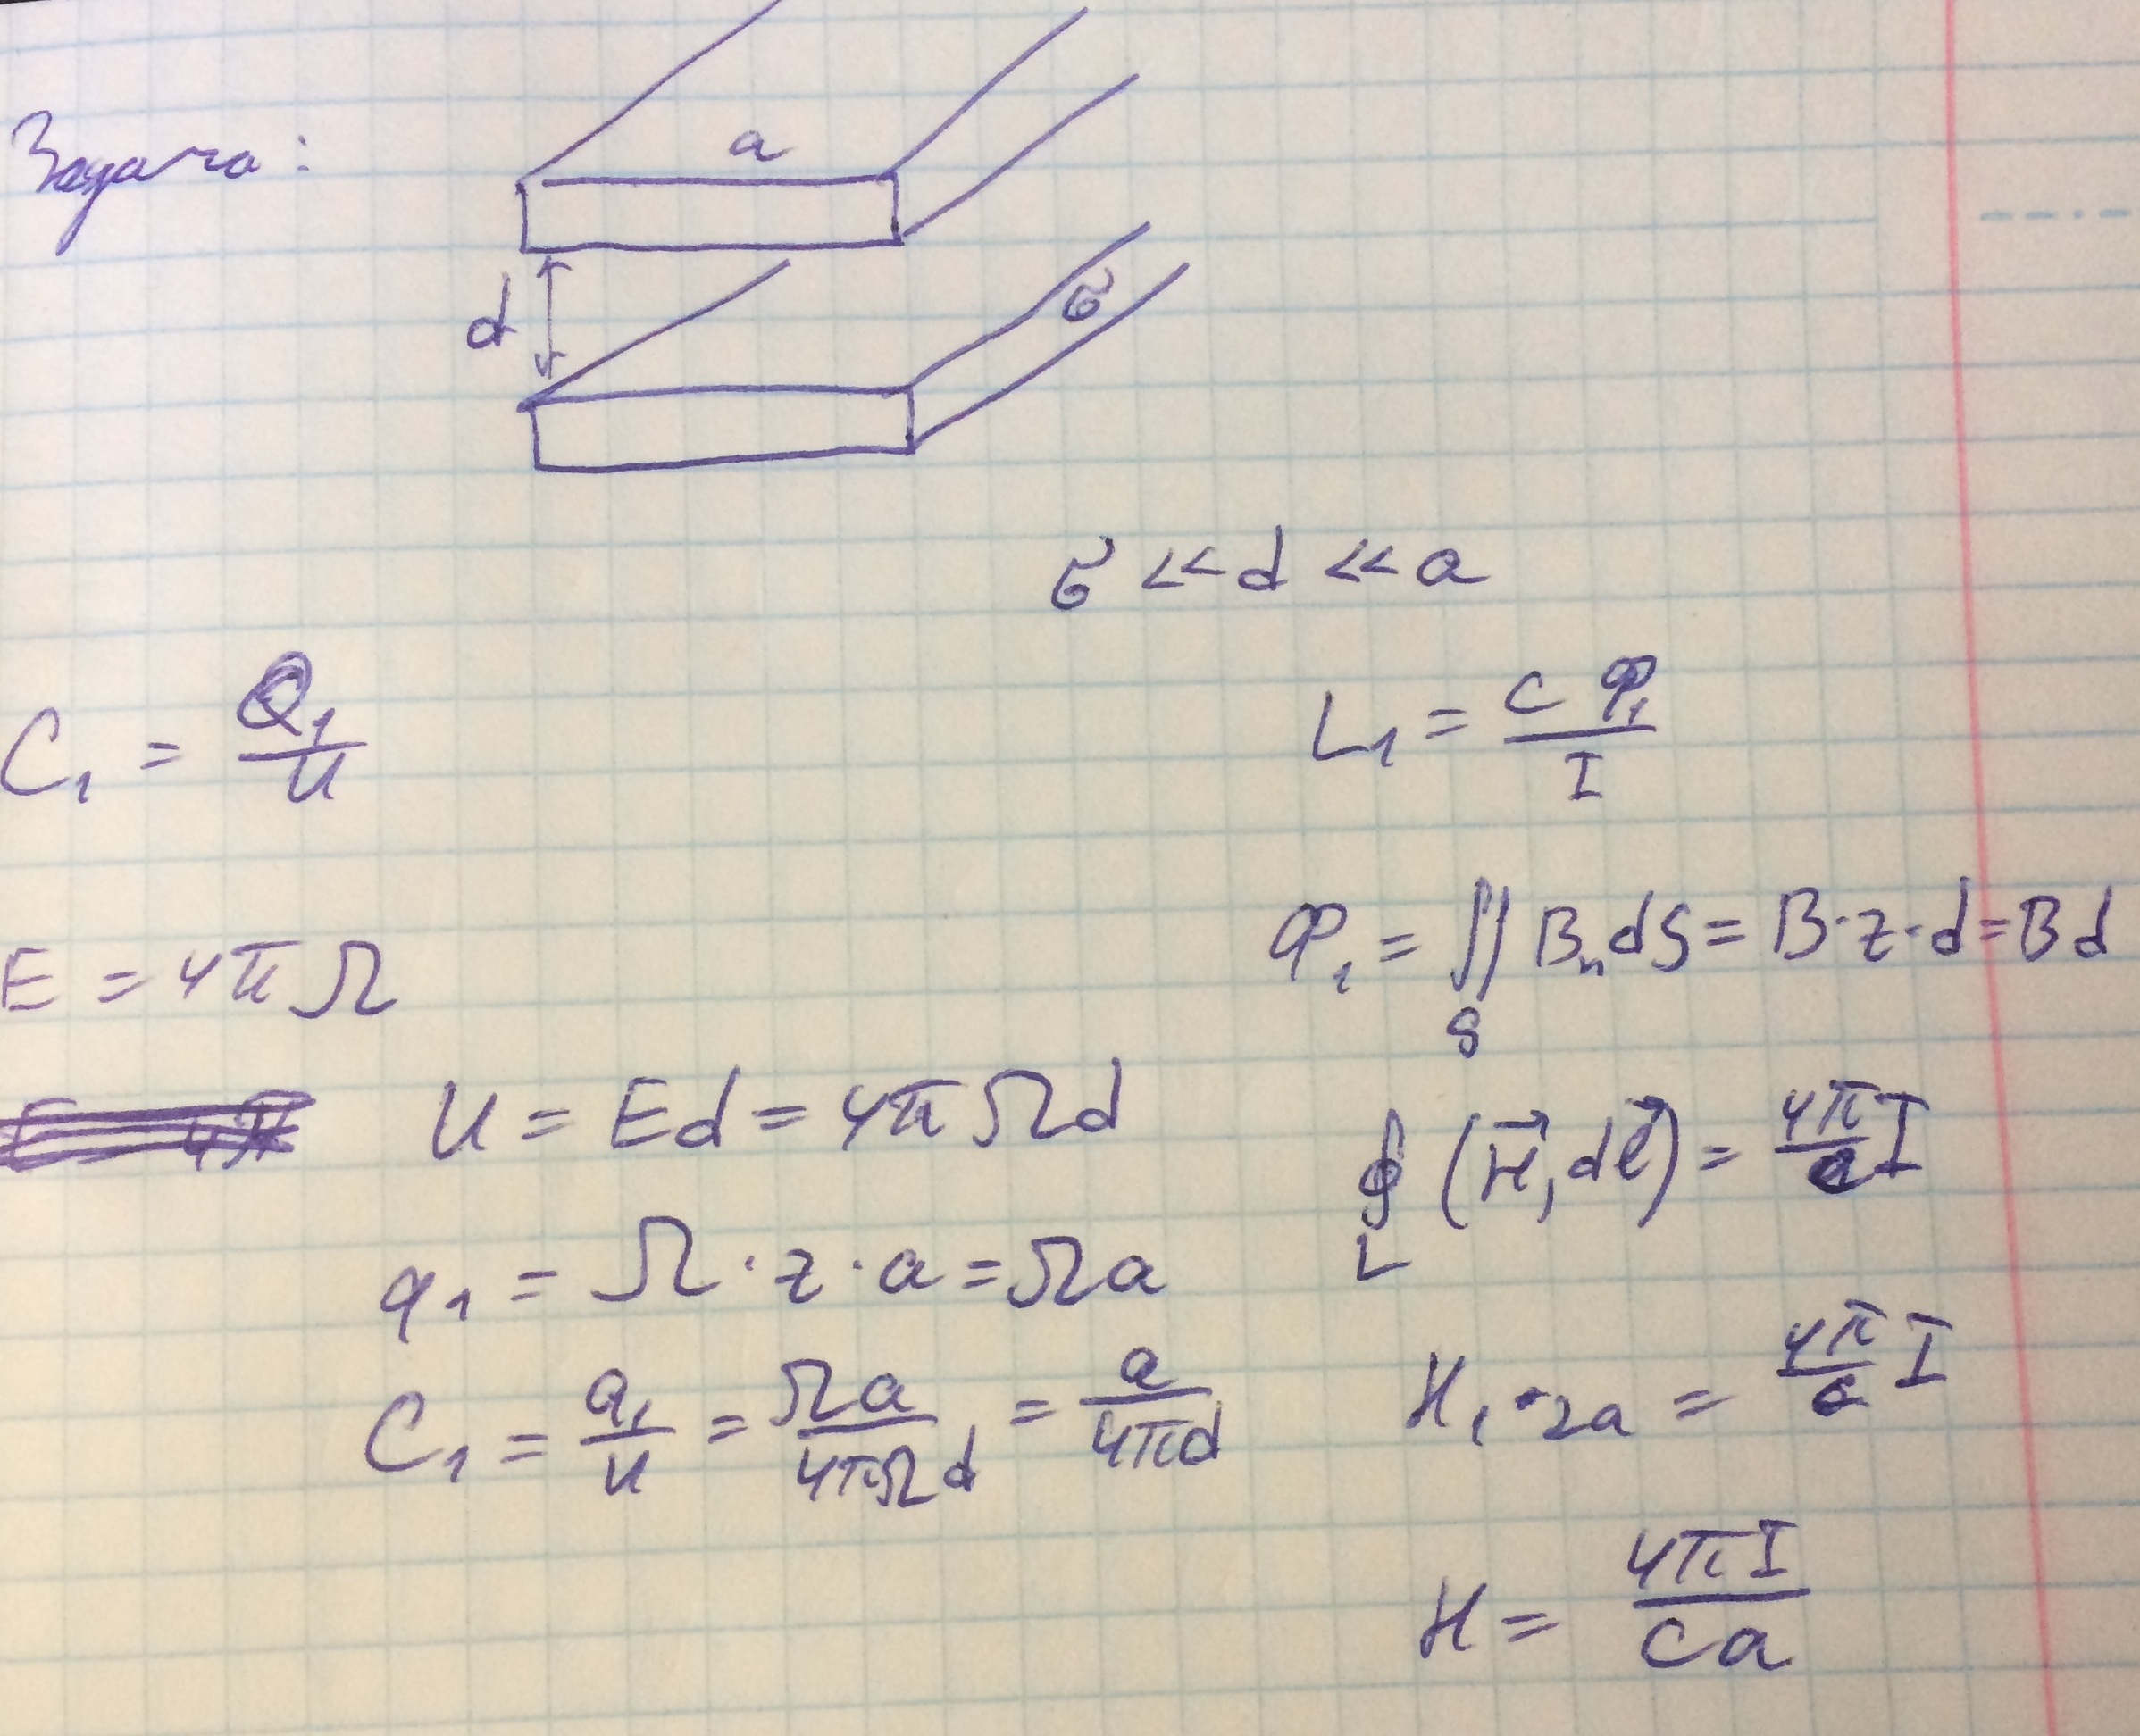 Задача:
a
d
б
б << d << a
C₁ = Q₁/U
L₁ = cΦ₁/I
E = 4πΩ
Φ₁ = ∬_S Bₙ dS = B·z·d = Bd
U = Ed = 4πΩd
∮_L (H⃗, dl⃗) = 4π/c I
q₁ = Ω·z·a = Ωa
H₁·2a = 4π/c I
C₁ = q₁/U = Ωa/4πΩd = a/4πd
H = 4πI/ca